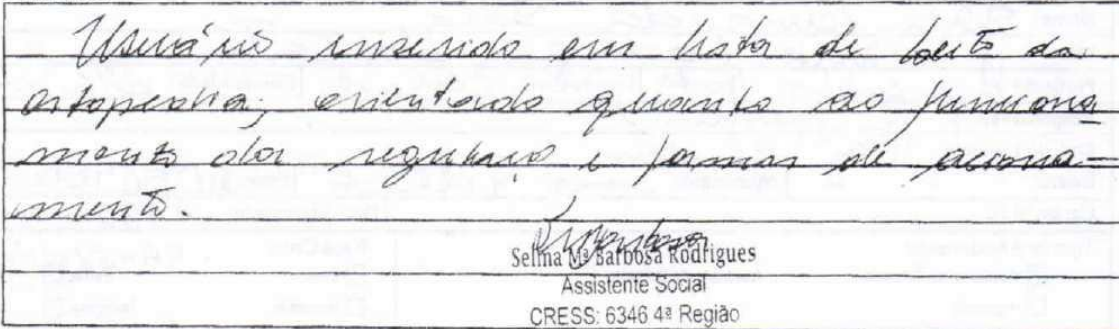 Usuário inserido em lista de leito da
ortopedia, orientado quanto ao funciona
mento da regulação e formas de aciona-
mento.
Selma Mª Barbosa Rodrigues
Assistente Social
CRESS: 6346 4ª Região